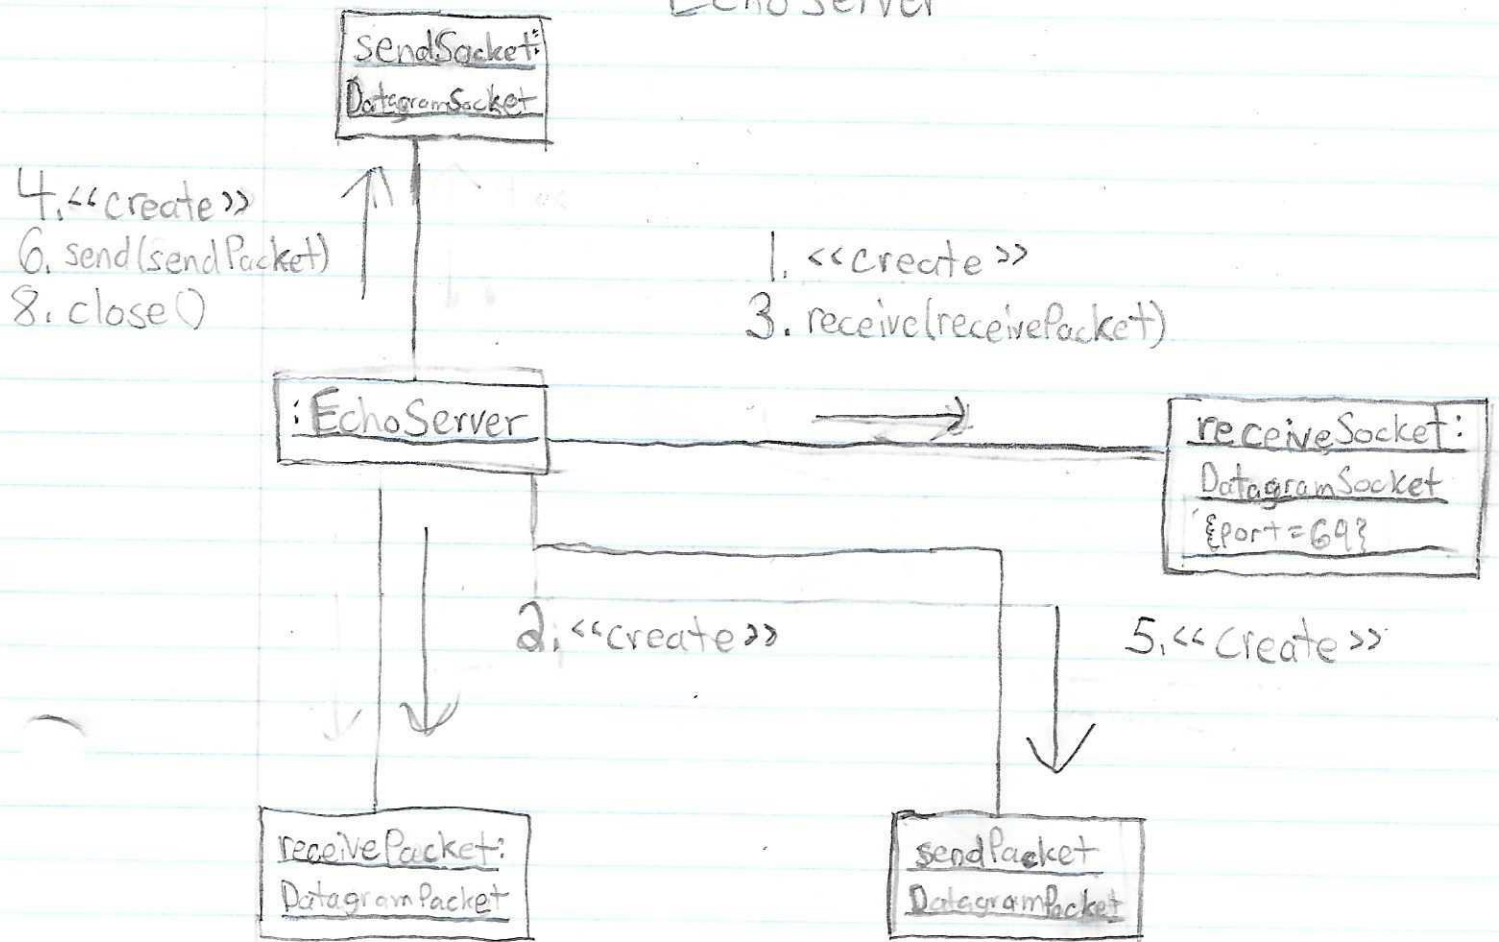 EchoServer
sendSocket:
DatagramSocket
4. <<create>>
6. send(sendPacket)
8. close()
1. <<create>>
3. receive(receivePacket)
:EchoServer
receiveSocket:
DatagramSocket
{port=69}
2. <<create>>
5. <<create>>
receivePacket:
DatagramPacket
sendPacket
DatagramPacket